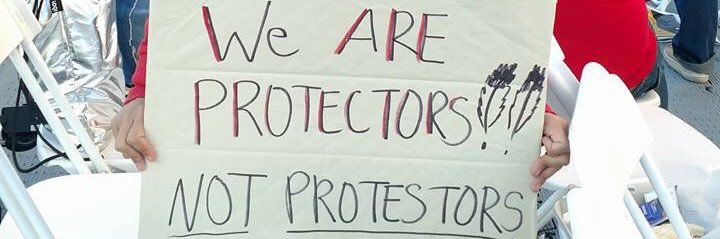 We ARE
PROTECTORS!!!
NOT PROTESTORS